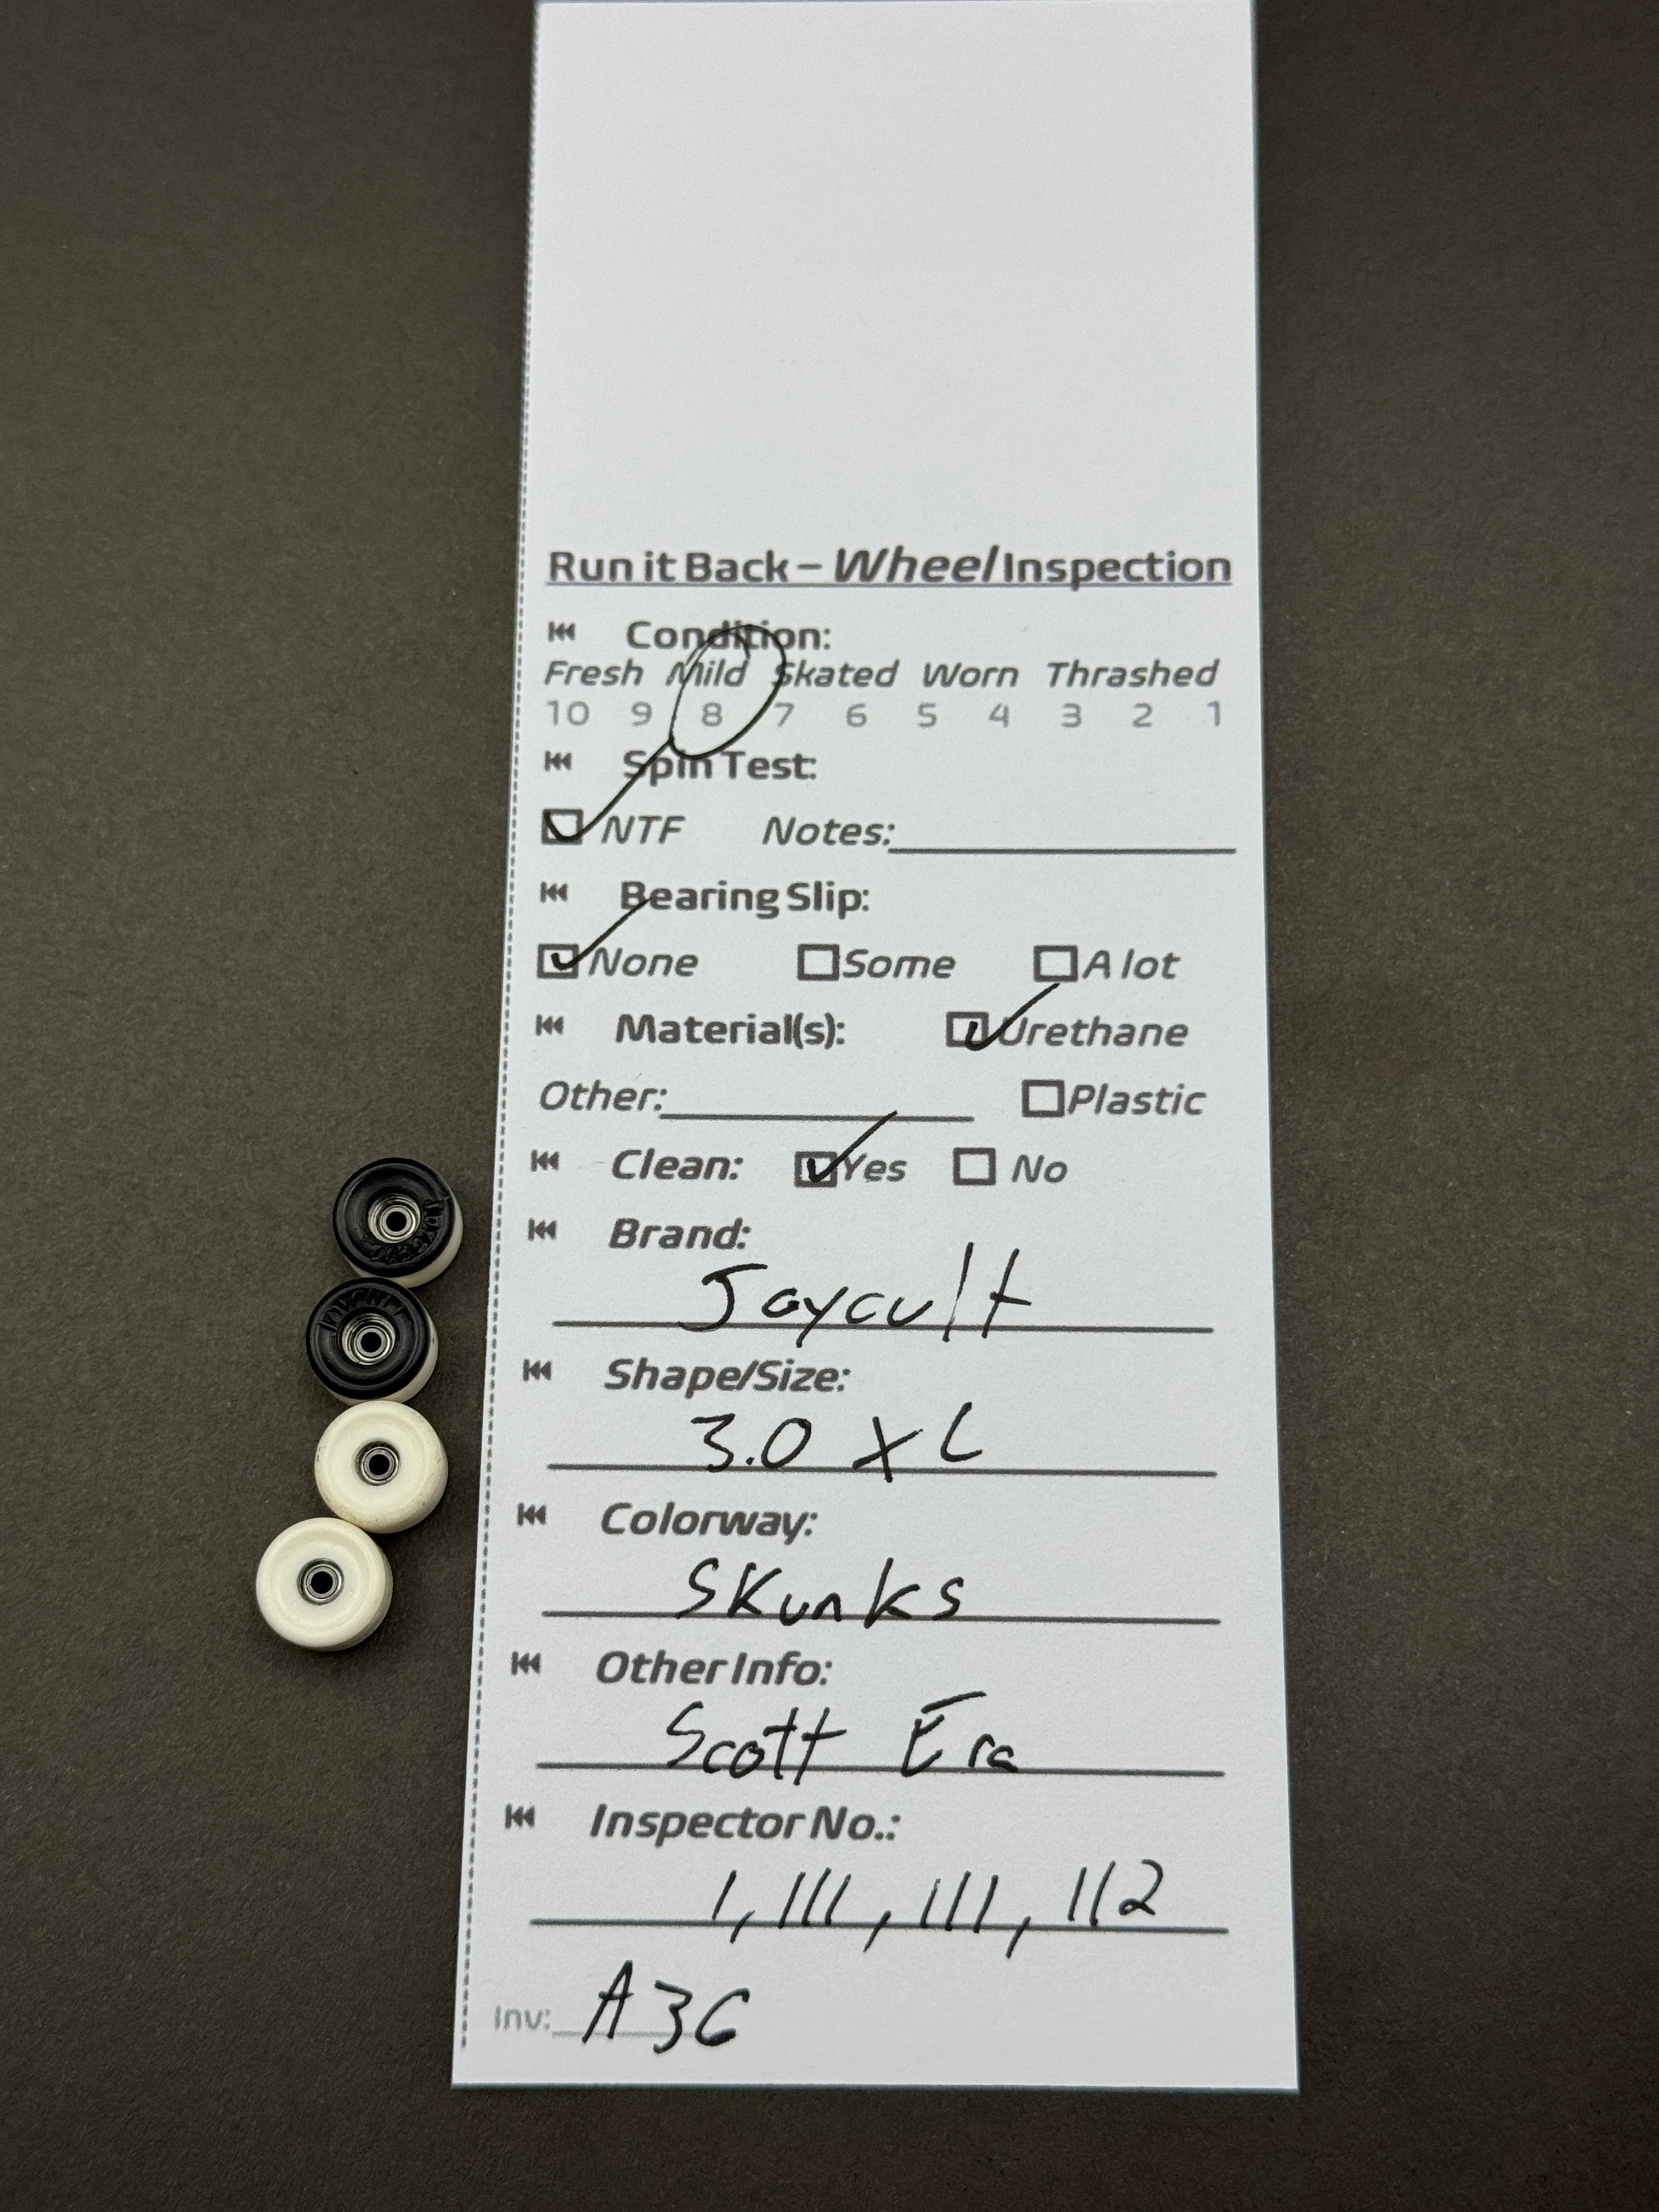 Run it Back – Wheel Inspection
Condition:
Fresh Mild Skated Worn Thrashed
10 9 8 7 6 5 4 3 2 1
Spin Test:
NTF Notes:
Bearing Slip:
None Some A lot
Material(s): Urethane
Other: Plastic
Clean: Yes No
Brand:
Joycult
Shape/Size:
3.0 XL
Colorway:
Skunks
Other Info:
Scott Era
Inspector No.:
1,111,111,112
Inv: A36
JOYCULT